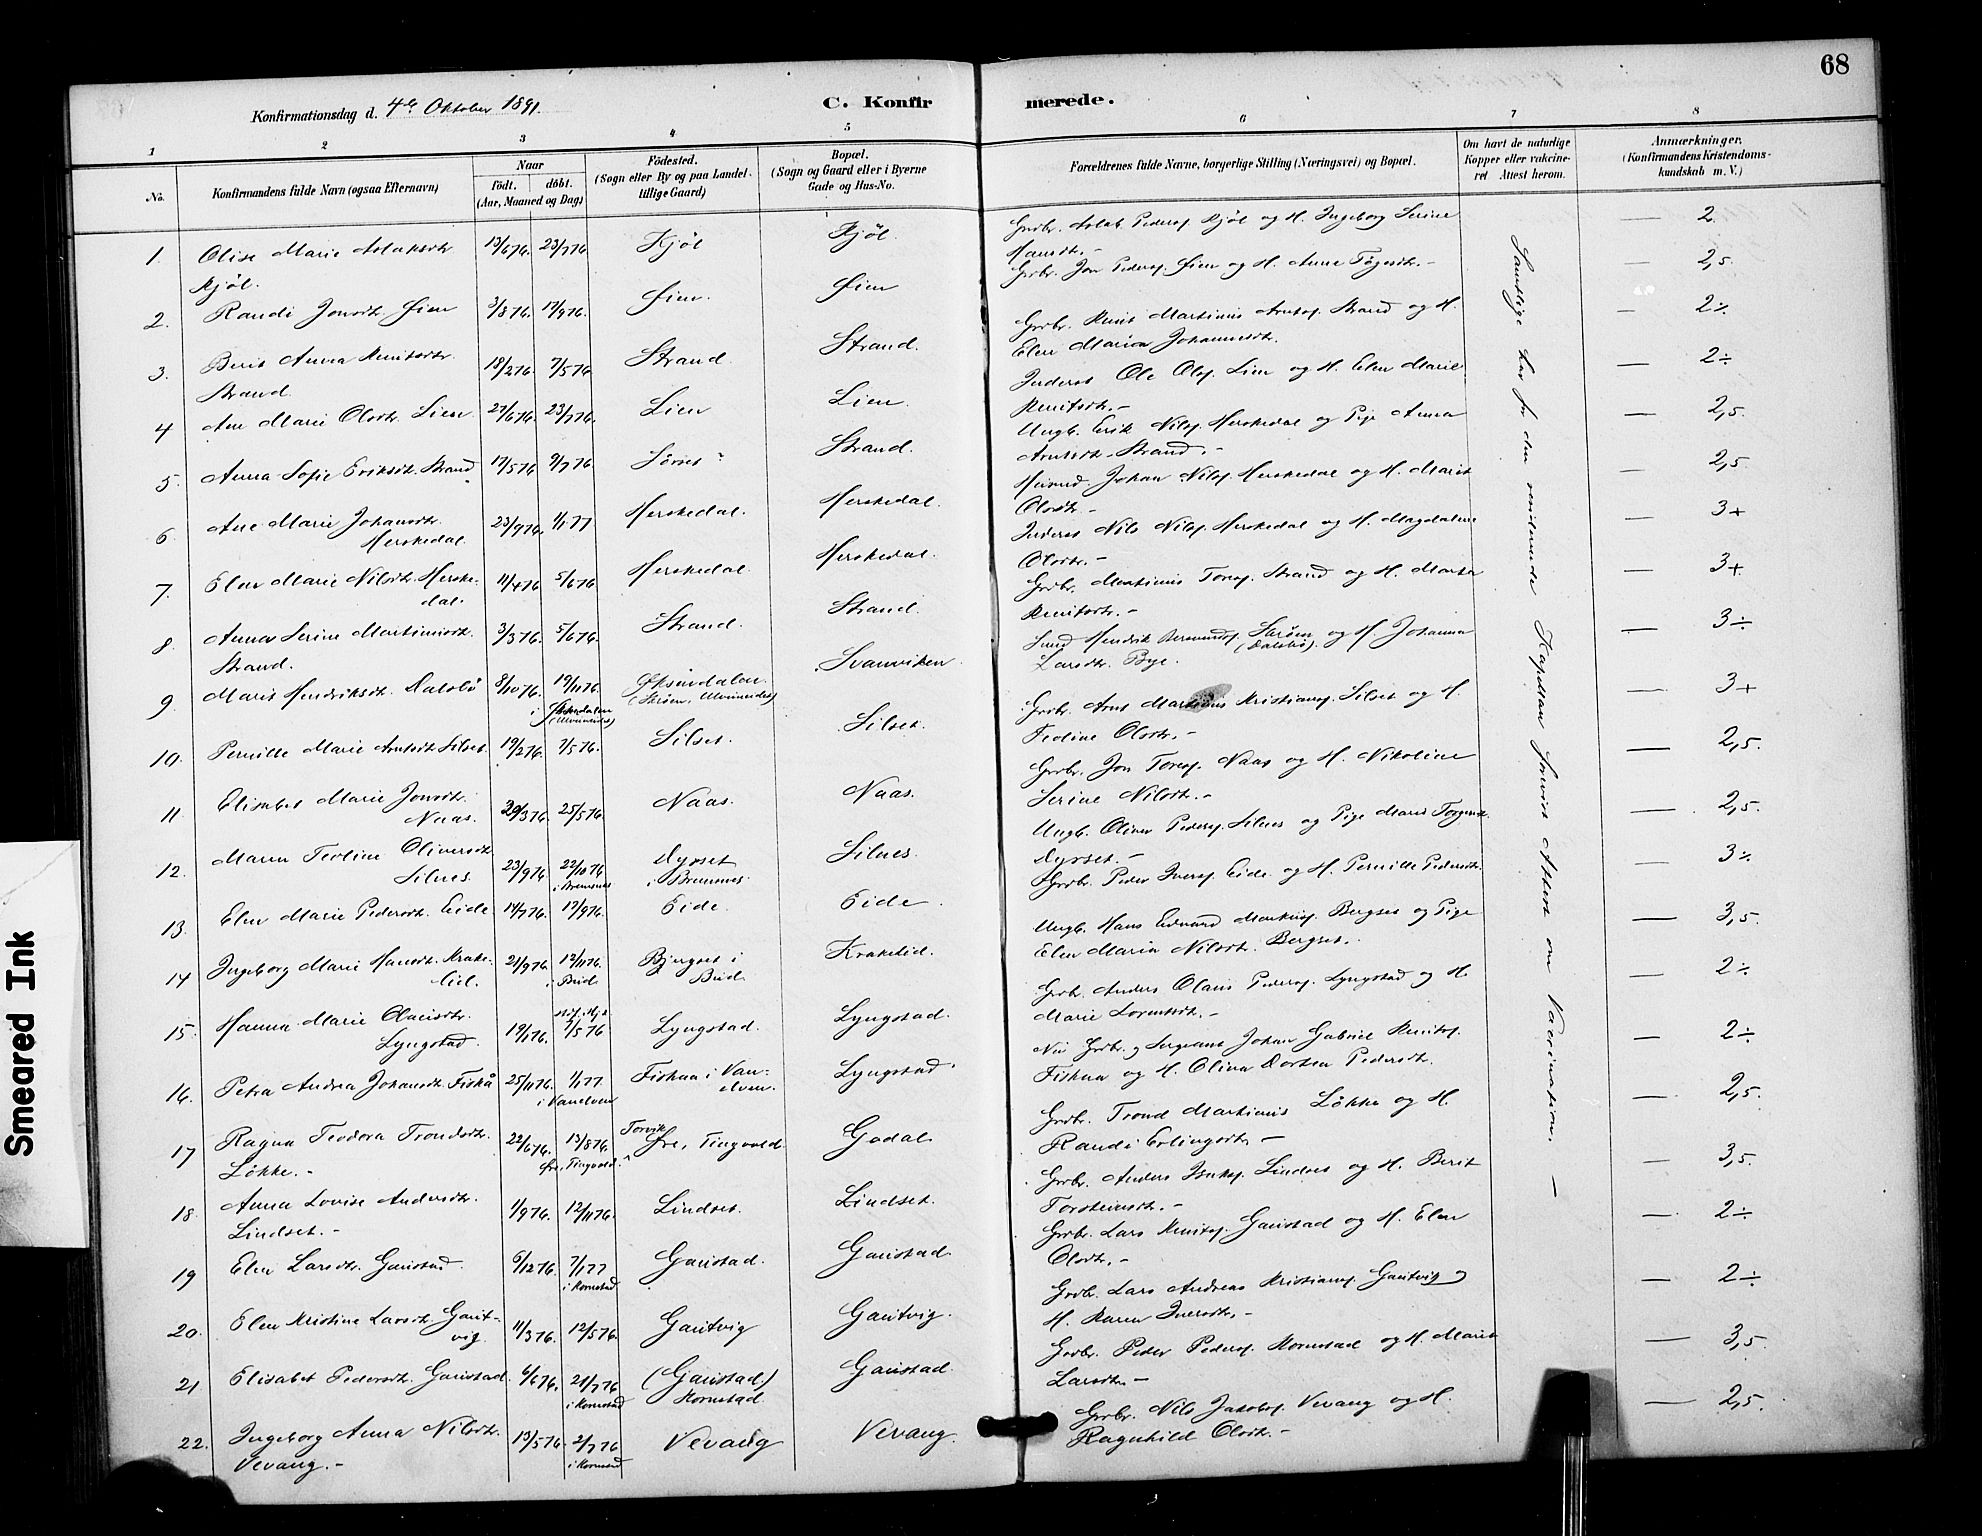 68
Konfirmationsdag d. 4de Oktober 1891.
C. Konfirmerede.
1 2 3 4 5 6 7 8
No.
Konfirmandens fulde Navn (ogsaa Efternavn)
Naar
födt. döbt.
(Aar, Maaned og Dag)
Födested.
(Sogn eller By og paa Landet tillige Gaard)
Bopæl.
(Sogn og Gaard eller i Byerne
Gade og Hus-No.
Forældrenes fulde Navne, borgerlige Stilling (Næringsvei) og Bopæl.
Om havt de naturlige
Kopper eller vakcineret Attest herom.
Anmærkninger.
(Konfirmandens Kristendomskundskab m. V.)
1. Olise Marie Aslaksdtr. Kjöl. 13/6 76. 23/7 76 Kjöl Kjöl. Grdbr. Aslak Peders. Kjöl og H. Ingeborg Serine Hansdtr.- — 2.
2. Randi Jonsdtr. Øien 3/8 76. 17/9 76. Øien. Øien Grbr. Jon Peders. Øien og H. Anne Tögesdtr.- — 2,5.
3. Berit Anna Knutsdtr. Strand. 18/2 76. 7/5 76 Strand. Strand. Grdbr. Knut Martinus Arntss. Strand og H. Elen Maria Johannesdtr. — 2÷
4 Ane Marie Olsdtr. Lien 27/6 76. 23/7 76. Lien Lien. Inderst Ole Ols. Lien og H. Elen Marie Knutsdtr.- — 2÷
5. Anna Sofie Eriksdtr. Strand 17/5 76 9/7 76 Strand. Ungk. Erik Nils. Herskedal og Pige Anna Arntsdtr. Strand.- — 2,5.
6 Ane Marie Johansdtr. Herskedal. 23/9 76. 1/1 77 Herskedal. Herskedal. Johan Nils. Herskedal og H. Marit Olsdtr.- — 2,5.
7. Elen Marie Nilsdtr. Herskedal. 11/4 76 5/6 76 Herskedal Herskedal. Inderst Nils Nils. Herskedal og H. Magdalene Olsdtr.- — 3+
8 Anna Serine Martinusdtr. Strand. 3/3 76. 5/6 76. Strand. Strand. Grdbr. Martinus Tores. Strand og H. Marta Knutsdtr.- — 3+
9 Marit Hendriksdtr. Dalsbö 8/10 76. 19/11 76. i Øksendalen (Ulvunds) Øksendalen (Ström, Ulvundes) Svanviken. Hendrik Ström (Dalsbö) og H. Johanna Larsdtr. Bye. — 3÷
10. Pernille Marie Arntsdtr. Silset. 19/2 76 7/5 76. Silset. Silset. Grdbr. Arnt Martinus Kristians. Silset og H. Teoline Olsdtr.- — 3+
11 Elisabet Marie Jonsdtr. Naas. 29/3 76. 25/5 76. Naas. Naas. Grdbr. Jon Tores. Naas og H. Nikoline Serine Nilsdtr.- — 2,5.
12. Maren Teoline Oliversdtr. Silnes. 23/9 76 22/10 76 i Bremsnes Dyrset i Bremsnes. Silnes. Ungk. Oliver Peders. Silnes og Pige Marit Dyrset.- — 2,5.
13. Elen Marie Pedersdtr. Eide. 14/7 76. 17/9 76. Eide. Eide. Grdbr. Peder Ivers. Eide og H. Pernille Pedersdtr. — 3÷
14 Ingeborg Marie Hansdtr. Krakelid. 21/9 76. 12/11 76. i Bud Bjergset i Bud. Krakelid. Ungk. Hans Edvard Bergset og Pige Elen Maria Nilsdtr. Bergset.- — 3,5.
15. Hanna Marie Olausdtr. Lyngstad. 19/1 76. 7/5 76 Lyngstad. Lyngstad. Grdbr. Anders Olaus Peders. Lyngstad og H. Marie Lorentsdtr.- — 2÷
16. Petra Andrea Johansdtr. Fiskå 25/11 76. 1/1 77 i Vanelven Fiskaa i Vanelven. Lyngstad. Nu Grdbr. og Sergeant Johan Gabriel Knuts. Fiskaa og H. Olina Dortea Pedersdtr. — 2÷
17 Ragna Teodora Trondsdtr. Lökke.- 22/6 76. 13/8 76. Øre, Tingvold. Torvik Øre, Tingvold. Gadal. Grdbr. Trond Martinus Lökke og H. Randi Erlingsdtr.- — 2,5.
18. Anna Lovise Andersdtr. Lindset.- 1/9 76. 12/11 76. Lindset. Lindset. Grdbr. Anders Isaks. Lindset og H. Berit Torsteinsdtr.- — 3,5.
19 Elen Larsdtr. Gaustad. 6/12 76. 7/1 77 i Kornstad Gaustad. Gaustad. Grdbr. Lars Knuts. Gaustad og H. Elen Olsdtr.- — 2÷
20. Elen Kristine Larsdtr. Gautvig. 11/3 76. 12/5 76. Gautvig Gautvig. Grdbr. Lars Andreas Kristians. Gautvig og H. Karen Iversdtr.- — 2÷
21 Elisabet Pedersdtr. Gaustad 6/6 76. 21/7 76 i Kornstad (Gaustad) Kornstad. Gaustad. Grdbr. Peder Peders. Kornstad og H. Marit Larsdtr.- — 3,5.
22. Ingeborg Anna Nilsdtr. Vevang.- 13/5 76. 2/7 76 i Kornstad Vevang Vevang. Grdbr. Nils Jakobs. Vevang og H. Ragnhild Olsdtr.- — 2,5.
Samtlige har for den residerende Kapellan forevist Attest om Vaccination.-
Smeared Ink